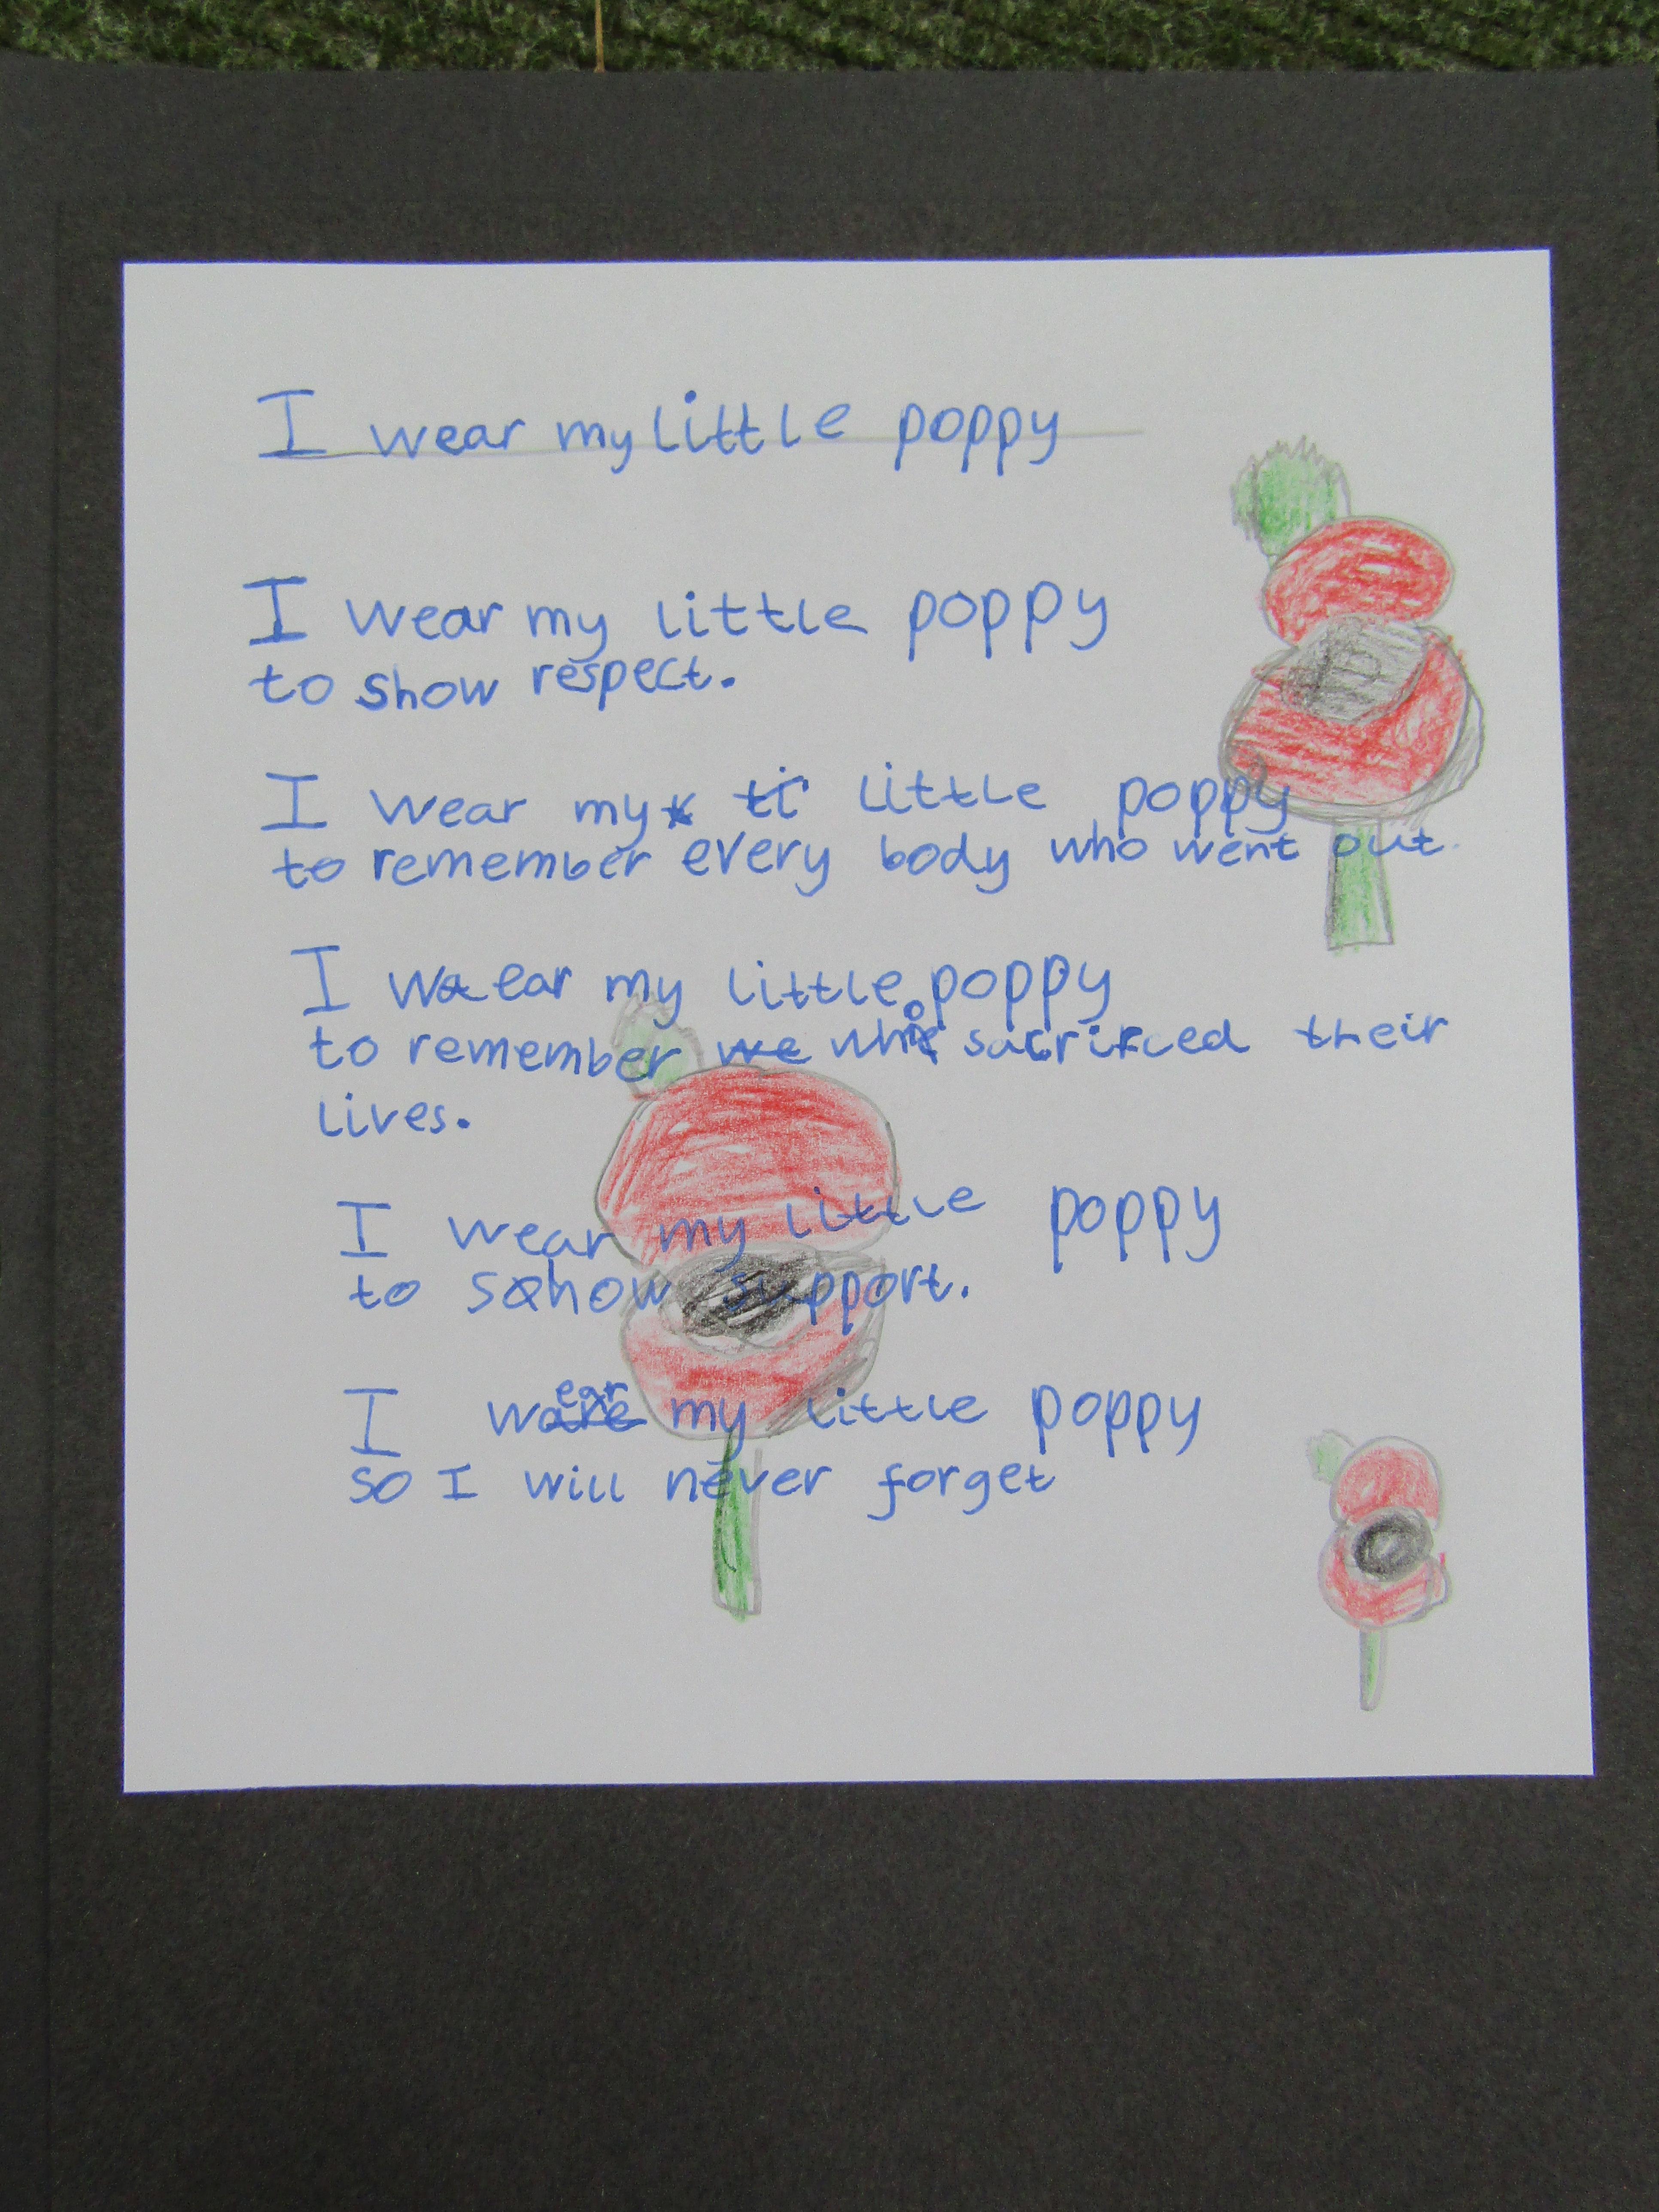 I wear my little poppy
I wear my little poppy
to show respect.
I wear my little poppy
to remember every body who went out.
I wear my little poppy
to remember who sacrificed their
lives.
I wear my little poppy
to show support.
I wear my little poppy
so I will never forget